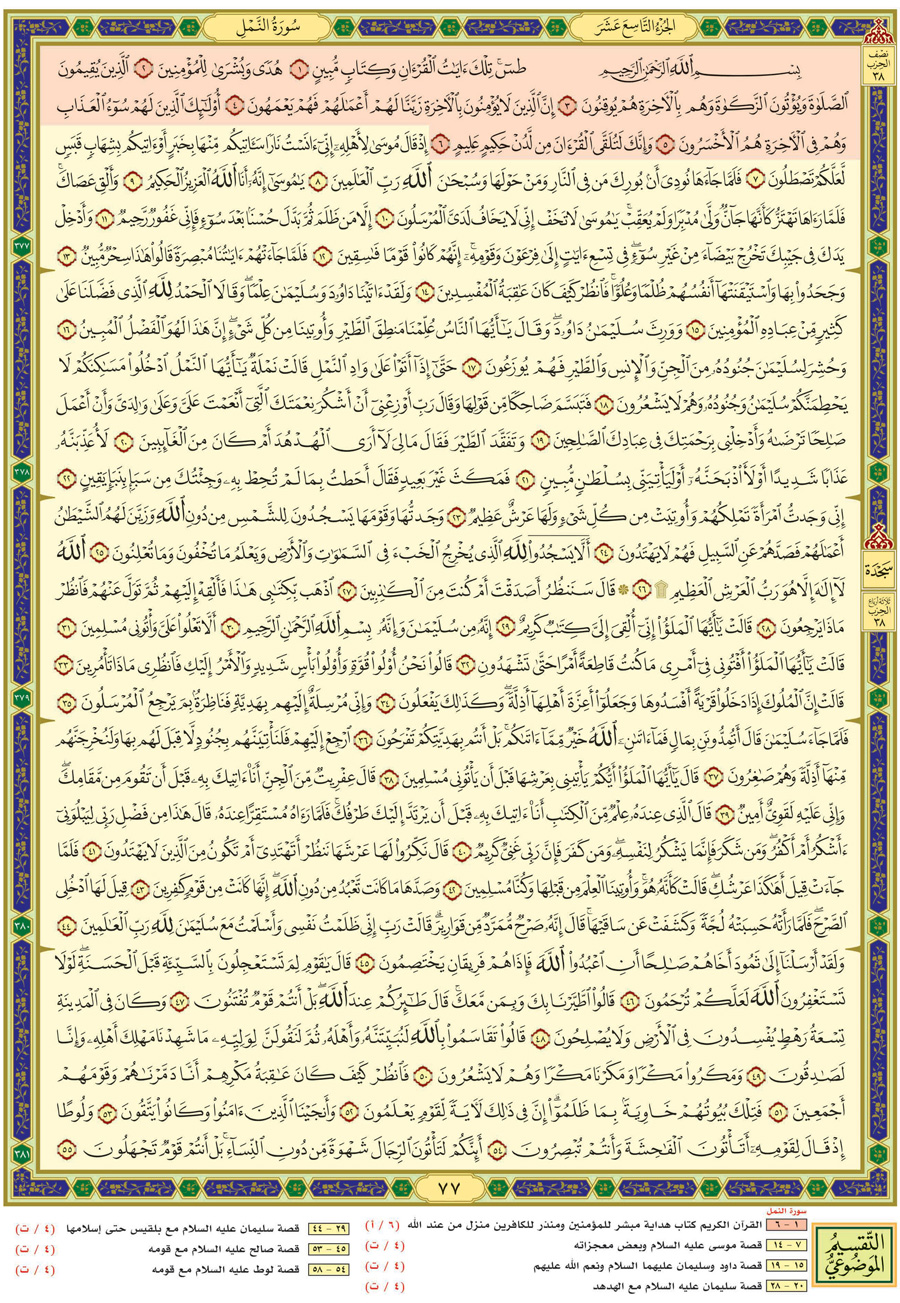 الجزء التاسع عشر
سورة النمل
نصف الحزب ٣٨
بِسْمِ ٱللَّهِ ٱلرَّحْمَٰنِ ٱلرَّحِيمِ طسٓ تِلْكَ ءَايَٰتُ ٱلْقُرْءَانِ وَكِتَابٍ مُّبِينٍ ١ هُدًى وَبُشْرَىٰ لِلْمُؤْمِنِينَ ٢ ٱلَّذِينَ يُقِيمُونَ
ٱلصَّلَوٰةَ وَيُؤْتُونَ ٱلزَّكَوٰةَ وَهُم بِٱلْءَاخِرَةِ هُمْ يُوقِنُونَ ٣ إِنَّ ٱلَّذِينَ لَا يُؤْمِنُونَ بِٱلْءَاخِرَةِ زَيَّنَّا لَهُمْ أَعْمَٰلَهُمْ فَهُمْ يَعْمَهُونَ ٤ أُو۟لَٰٓئِكَ ٱلَّذِينَ لَهُمْ سُوٓءُ ٱلْعَذَابِ
وَهُمْ فِى ٱلْءَاخِرَةِ هُمُ ٱلْأَخْسَرُونَ ٥ وَإِنَّكَ لَتُلَقَّى ٱلْقُرْءَانَ مِن لَّدُنْ حَكِيمٍ عَلِيمٍ ٦ إِذْ قَالَ مُوسَىٰ لِأَهْلِهِۦٓ إِنِّىٓ ءَانَسْتُ نَارًا سَـَٔاتِيكُم مِّنْهَا بِخَبَرٍ أَوْ ءَاتِيكُم بِشِهَابٍ قَبَسٍ
لَّعَلَّكُمْ تَصْطَلُونَ ٧ فَلَمَّا جَآءَهَا نُودِىَ أَنۢ بُورِكَ مَن فِى ٱلنَّارِ وَمَنْ حَوْلَهَا وَسُبْحَٰنَ ٱللَّهِ رَبِّ ٱلْعَٰلَمِينَ ٨ يَٰمُوسَىٰٓ إِنَّهُۥٓ أَنَا ٱللَّهُ ٱلْعَزِيزُ ٱلْحَكِيمُ ٩ وَأَلْقِ عَصَاكَ
فَلَمَّا رَءَاهَا تَهْتَزُّ كَأَنَّهَا جَآنٌّ وَلَّىٰ مُدْبِرًا وَلَمْ يُعَقِّبْ يَٰمُوسَىٰ لَا تَخَفْ إِنِّى لَا يَخَافُ لَدَىَّ ٱلْمُرْسَلُونَ ١٠ إِلَّا مَن ظَلَمَ ثُمَّ بَدَّلَ حُسْنًۢا بَعْدَ سُوٓءٍ فَإِنِّى غَفُورٌ رَّحِيمٌ ١١ وَأَدْخِلْ
يَدَكَ فِى جَيْبِكَ تَخْرُجْ بَيْضَآءَ مِنْ غَيْرِ سُوٓءٍ فِى تِسْعِ ءَايَٰتٍ إِلَىٰ فِرْعَوْنَ وَقَوْمِهِۦٓ إِنَّهُمْ كَانُوا۟ قَوْمًا فَٰسِقِينَ ١٢ فَلَمَّا جَآءَتْهُمْ ءَايَٰتُنَا مُبْصِرَةً قَالُوا۟ هَٰذَا سِحْرٌ مُّبِينٌ ١٣
وَجَحَدُوا۟ بِهَا وَٱسْتَيْقَنَتْهَآ أَنفُسُهُمْ ظُلْمًا وَعُلُوًّا فَٱنظُرْ كَيْفَ كَانَ عَٰقِبَةُ ٱلْمُفْسِدِينَ ١٤ وَلَقَدْ ءَاتَيْنَا دَاوُۥدَ وَسُلَيْمَٰنَ عِلْمًا وَقَالَا ٱلْحَمْدُ لِلَّهِ ٱلَّذِى فَضَّلَنَا عَلَىٰ
كَثِيرٍ مِّنْ عِبَادِهِ ٱلْمُؤْمِنِينَ ١٥ وَوَرِثَ سُلَيْمَٰنُ دَاوُۥدَ وَقَالَ يَٰٓأَيُّهَا ٱلنَّاسُ عُلِّمْنَا مَنطِقَ ٱلطَّيْرِ وَأُوتِينَا مِن كُلِّ شَىْءٍ إِنَّ هَٰذَا لَهُوَ ٱلْفَضْلُ ٱلْمُبِينُ ١٦
وَحُشِرَ لِسُلَيْمَٰنَ جُنُودُهُۥ مِنَ ٱلْجِنِّ وَٱلْإِنسِ وَٱلطَّيْرِ فَهُمْ يُوزَعُونَ ١٧ حَتَّىٰٓ إِذَآ أَتَوْا۟ عَلَىٰ وَادِ ٱلنَّمْلِ قَالَتْ نَمْلَةٌ يَٰٓأَيُّهَا ٱلنَّمْلُ ٱدْخُلُوا۟ مَسَٰكِنَكُمْ لَا
يَحْطِمَنَّكُمْ سُلَيْمَٰنُ وَجُنُودُهُۥ وَهُمْ لَا يَشْعُرُونَ ١٨ فَتَبَسَّمَ ضَاحِكًا مِّن قَوْلِهَا وَقَالَ رَبِّ أَوْزِعْنِىٓ أَنْ أَشْكُرَ نِعْمَتَكَ ٱلَّتِىٓ أَنْعَمْتَ عَلَىَّ وَعَلَىٰ وَٰلِدَىَّ وَأَنْ أَعْمَلَ
صَٰلِحًا تَرْضَىٰهُ وَأَدْخِلْنِى بِرَحْمَتِكَ فِى عِبَادِكَ ٱلصَّٰلِحِينَ ١٩ وَتَفَقَّدَ ٱلطَّيْرَ فَقَالَ مَالِىَ لَآ أَرَى ٱلْهُدْهُدَ أَمْ كَانَ مِنَ ٱلْغَآئِبِينَ ٢٠ لَأُعَذِّبَنَّهُۥ
عَذَابًا شَدِيدًا أَوْ لَأَا۟ذْبَحَنَّهُۥٓ أَوْ لَيَأْتِيَنِّى بِسُلْطَٰنٍ مُّبِينٍ ٢١ فَمَكَثَ غَيْرَ بَعِيدٍ فَقَالَ أَحَطتُ بِمَا لَمْ تُحِطْ بِهِۦ وَجِئْتُكَ مِن سَبَإٍۭ بِنَبَإٍ يَقِينٍ ٢٢
إِنِّى وَجَدتُّ ٱمْرَأَةً تَمْلِكُهُمْ وَأُوتِيَتْ مِن كُلِّ شَىْءٍ وَلَهَا عَرْشٌ عَظِيمٌ ٢٣ وَجَدتُّهَا وَقَوْمَهَا يَسْجُدُونَ لِلشَّمْسِ مِن دُونِ ٱللَّهِ وَزَيَّنَ لَهُمُ ٱلشَّيْطَٰنُ
أَعْمَٰلَهُمْ فَصَدَّهُمْ عَنِ ٱلسَّبِيلِ فَهُمْ لَا يَهْتَدُونَ ٢٤ أَلَّا يَسْجُدُوا۟ لِلَّهِ ٱلَّذِى يُخْرِجُ ٱلْخَبْءَ فِى ٱلسَّمَٰوَٰتِ وَٱلْأَرْضِ وَيَعْلَمُ مَا تُخْفُونَ وَمَا تُعْلِنُونَ ٢٥ ٱللَّهُ
لَآ إِلَٰهَ إِلَّا هُوَ رَبُّ ٱلْعَرْشِ ٱلْعَظِيمِ ۩ ٢٦ ۞ قَالَ سَنَنظُرُ أَصَدَقْتَ أَمْ كُنتَ مِنَ ٱلْكَٰذِبِينَ ٢٧ ٱذْهَب بِّكِتَٰبِى هَٰذَا فَأَلْقِهْ إِلَيْهِمْ ثُمَّ تَوَلَّ عَنْهُمْ فَٱنظُرْ
مَاذَا يَرْجِعُونَ ٢٨ قَالَتْ يَٰٓأَيُّهَا ٱلْمَلَؤُا۟ إِنِّىٓ أُلْقِىَ إِلَىَّ كِتَٰبٌ كَرِيمٌ ٢٩ إِنَّهُۥ مِن سُلَيْمَٰنَ وَإِنَّهُۥ بِسْمِ ٱللَّهِ ٱلرَّحْمَٰنِ ٱلرَّحِيمِ ٣٠ أَلَّا تَعْلُوا۟ عَلَىَّ وَأْتُونِى مُسْلِمِينَ ٣١
قَالَتْ يَٰٓأَيُّهَا ٱلْمَلَؤُا۟ أَفْتُونِى فِىٓ أَمْرِى مَا كُنتُ قَاطِعَةً أَمْرًا حَتَّىٰ تَشْهَدُونِ ٣٢ قَالُوا۟ نَحْنُ أُو۟لُوا۟ قُوَّةٍ وَأُو۟لُوا۟ بَأْسٍ شَدِيدٍ وَٱلْأَمْرُ إِلَيْكِ فَٱنظُرِى مَاذَا تَأْمُرِينَ ٣٣
قَالَتْ إِنَّ ٱلْمُلُوكَ إِذَا دَخَلُوا۟ قَرْيَةً أَفْسَدُوهَا وَجَعَلُوٓا۟ أَعِزَّةَ أَهْلِهَآ أَذِلَّةً وَكَذَٰلِكَ يَفْعَلُونَ ٣٤ وَإِنِّى مُرْسِلَةٌ إِلَيْهِم بِهَدِيَّةٍ فَنَاظِرَةٌۢ بِمَ يَرْجِعُ ٱلْمُرْسَلُونَ ٣٥
فَلَمَّا جَآءَ سُلَيْمَٰنَ قَالَ أَتُمِدُّونَنِ بِمَالٍ فَمَآ ءَاتَىٰنِۦَ ٱللَّهُ خَيْرٌ مِّمَّآ ءَاتَىٰكُم بَلْ أَنتُم بِهَدِيَّتِكُمْ تَفْرَحُونَ ٣٦ ٱرْجِعْ إِلَيْهِمْ فَلَنَأْتِيَنَّهُم بِجُنُودٍ لَّا قِبَلَ لَهُم بِهَا وَلَنُخْرِجَنَّهُم
مِّنْهَآ أَذِلَّةً وَهُمْ صَٰغِرُونَ ٣٧ قَالَ يَٰٓأَيُّهَا ٱلْمَلَؤُا۟ أَيُّكُمْ يَأْتِينِى بِعَرْشِهَا قَبْلَ أَن يَأْتُونِى مُسْلِمِينَ ٣٨ قَالَ عِفْرِيتٌ مِّنَ ٱلْجِنِّ أَنَا۠ ءَاتِيكَ بِهِۦ قَبْلَ أَن تَقُومَ مِن مَّقَامِكَ
وَإِنِّى عَلَيْهِ لَقَوِىٌّ أَمِينٌ ٣٩ قَالَ ٱلَّذِى عِندَهُۥ عِلْمٌ مِّنَ ٱلْكِتَٰبِ أَنَا۠ ءَاتِيكَ بِهِۦ قَبْلَ أَن يَرْتَدَّ إِلَيْكَ طَرْفُكَ فَلَمَّا رَءَاهُ مُسْتَقِرًّا عِندَهُۥ قَالَ هَٰذَا مِن فَضْلِ رَبِّى لِيَبْلُوَنِىٓ
ءَأَشْكُرُ أَمْ أَكْفُرُ وَمَن شَكَرَ فَإِنَّمَا يَشْكُرُ لِنَفْسِهِۦ وَمَن كَفَرَ فَإِنَّ رَبِّى غَنِىٌّ كَرِيمٌ ٤٠ قَالَ نَكِّرُوا۟ لَهَا عَرْشَهَا نَنظُرْ أَتَهْتَدِىٓ أَمْ تَكُونُ مِنَ ٱلَّذِينَ لَا يَهْتَدُونَ ٤١ فَلَمَّا
جَآءَتْ قِيلَ أَهَٰكَذَا عَرْشُكِ قَالَتْ كَأَنَّهُۥ هُوَ وَأُوتِينَا ٱلْعِلْمَ مِن قَبْلِهَا وَكُنَّا مُسْلِمِينَ ٤٢ وَصَدَّهَا مَا كَانَت تَّعْبُدُ مِن دُونِ ٱللَّهِ إِنَّهَا كَانَتْ مِن قَوْمٍ كَٰفِرِينَ ٤٣ قِيلَ لَهَا ٱدْخُلِى
ٱلصَّرْحَ فَلَمَّا رَأَتْهُ حَسِبَتْهُ لُجَّةً وَكَشَفَتْ عَن سَاقَيْهَا قَالَ إِنَّهُۥ صَرْحٌ مُّمَرَّدٌ مِّن قَوَارِيرَ قَالَتْ رَبِّ إِنِّى ظَلَمْتُ نَفْسِى وَأَسْلَمْتُ مَعَ سُلَيْمَٰنَ لِلَّهِ رَبِّ ٱلْعَٰلَمِينَ ٤٤
وَلَقَدْ أَرْسَلْنَآ إِلَىٰ ثَمُودَ أَخَاهُمْ صَٰلِحًا أَنِ ٱعْبُدُوا۟ ٱللَّهَ فَإِذَا هُمْ فَرِيقَانِ يَخْتَصِمُونَ ٤٥ قَالَ يَٰقَوْمِ لِمَ تَسْتَعْجِلُونَ بِٱلسَّيِّئَةِ قَبْلَ ٱلْحَسَنَةِ لَوْلَا
تَسْتَغْفِرُونَ ٱللَّهَ لَعَلَّكُمْ تُرْحَمُونَ ٤٦ قَالُوا۟ ٱطَّيَّرْنَا بِكَ وَبِمَن مَّعَكَ قَالَ طَٰٓئِرُكُمْ عِندَ ٱللَّهِ بَلْ أَنتُمْ قَوْمٌ تُفْتَنُونَ ٤٧ وَكَانَ فِى ٱلْمَدِينَةِ
تِسْعَةُ رَهْطٍ يُفْسِدُونَ فِى ٱلْأَرْضِ وَلَا يُصْلِحُونَ ٤٨ قَالُوا۟ تَقَاسَمُوا۟ بِٱللَّهِ لَنُبَيِّتَنَّهُۥ وَأَهْلَهُۥ ثُمَّ لَنَقُولَنَّ لِوَلِيِّهِۦ مَا شَهِدْنَا مَهْلِكَ أَهْلِهِۦ وَإِنَّا
لَصَٰدِقُونَ ٤٩ وَمَكَرُوا۟ مَكْرًا وَمَكَرْنَا مَكْرًا وَهُمْ لَا يَشْعُرُونَ ٥٠ فَٱنظُرْ كَيْفَ كَانَ عَٰقِبَةُ مَكْرِهِمْ أَنَّا دَمَّرْنَٰهُمْ وَقَوْمَهُمْ
أَجْمَعِينَ ٥١ فَتِلْكَ بُيُوتُهُمْ خَاوِيَةًۢ بِمَا ظَلَمُوٓا۟ إِنَّ فِى ذَٰلِكَ لَءَايَةً لِّقَوْمٍ يَعْلَمُونَ ٥٢ وَأَنجَيْنَا ٱلَّذِينَ ءَامَنُوا۟ وَكَانُوا۟ يَتَّقُونَ ٥٣ وَلُوطًا
إِذْ قَالَ لِقَوْمِهِۦٓ أَتَأْتُونَ ٱلْفَٰحِشَةَ وَأَنتُمْ تُبْصِرُونَ ٥٤ أَئِنَّكُمْ لَتَأْتُونَ ٱلرِّجَالَ شَهْوَةً مِّن دُونِ ٱلنِّسَآءِ بَلْ أَنتُمْ قَوْمٌ تَجْهَلُونَ ٥٥
٣٧٧
٣٧٨
سجدة
ثلاثة أرباع الحزب ٣٨
٣٧٩
٣٨٠
٣٨١
٧٧
التقسيم الموضوعي
سورة النمل
١ - ٦ القرآن الكريم كتاب هداية مبشر للمؤمنين ومنذر للكافرين منزل من عند الله (٦ / أ)
٧ - ١٤ قصة موسى عليه السلام وبعض معجزاته (٤ / ت)
١٥ - ١٩ قصة داود وسليمان عليهما السلام ونعم الله عليهم (٤ / ت)
٢٠ - ٢٨ قصة سليمان عليه السلام مع الهدهد (٤ / ت)
٢٩ - ٤٤ قصة سليمان عليه السلام مع بلقيس حتى إسلامها (٤ / ت)
٤٥ - ٥٣ قصة صالح عليه السلام مع قومه (٤ / ت)
٥٤ - ٥٨ قصة لوط عليه السلام مع قومه (٤ / ت)